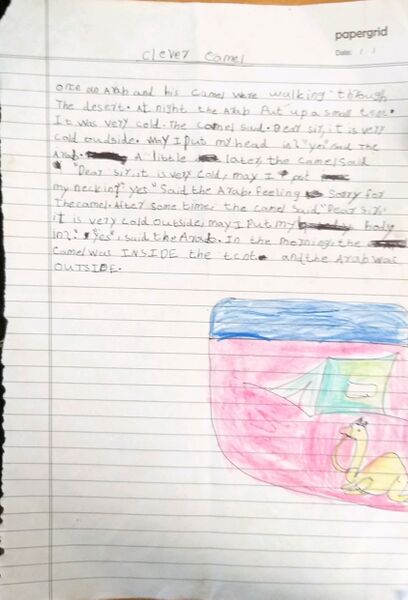 papergrid
Date: / /
Clever Camel
Once an Arab and his Camel were walking through
The desert. At night the Arab Put up a small tent.
It was very cold. The Camel said. Dear sir, it is very
cold oudside. May I put my head in? "yes" said The
Arab. A little later the camel said
"Dear sir, it is very cold, may I put
my neck in?" yes" Said the Arab. feeling Sorry for
The camel. After some time, the camel said "Dear Sir,
it is very cold outside, may I Put my body
in?" "yes", said the Arab. In the morning, the
Camel was INSIDE the tent and the Arab was
OUTSIDE.